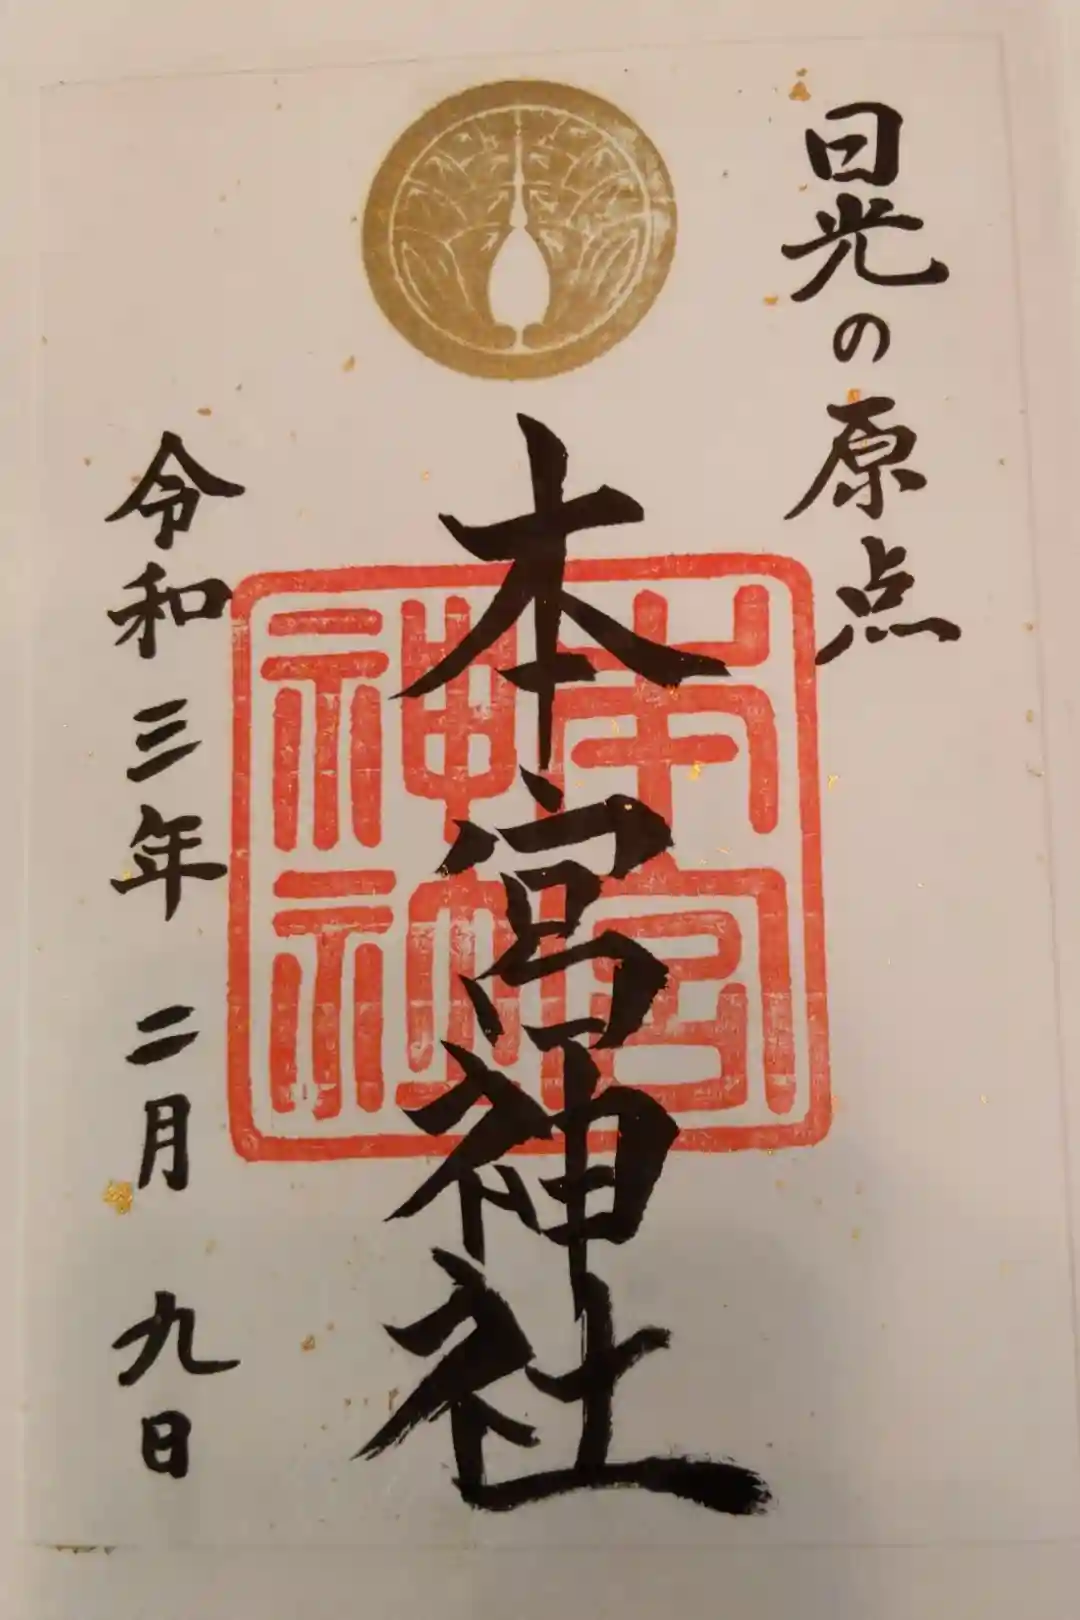 日光の原点
本宮神社
本宮
神社
令和三年二月九日